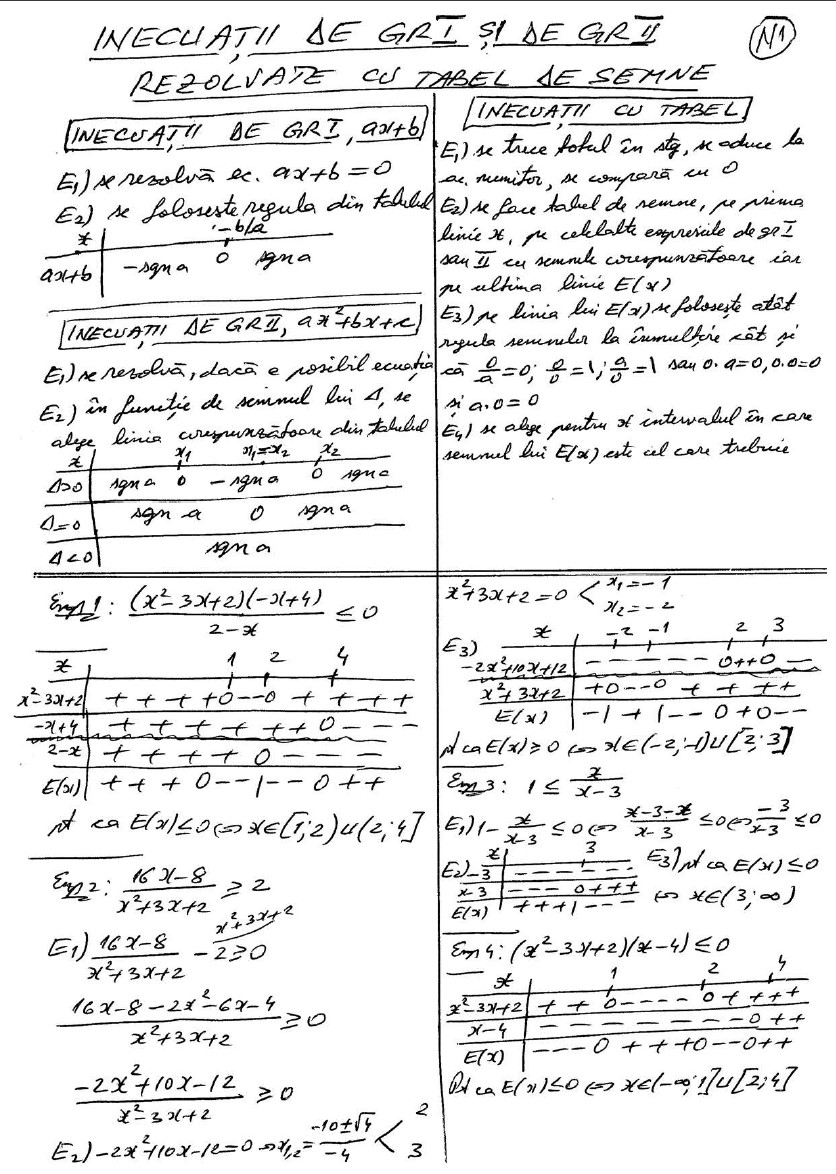 INECUAȚII DE GR I ȘI DE GR II
N1
REZOLVATE CU TABEL DE SEMNE
INECUAȚII DE GR I, ax+b
E₁) se rezolvă ec. ax+b=0
E₂) se folosește regula din tabelul
x | -b/a
ax+b | -sgn a 0 sgn a
INECUAȚII DE GR II, ax²+bx+c
E₁) se rezolvă, dacă e posibil ecuația
E₂) în funcție de semnul lui Δ, se
alege linia corespunzătoare din tabelul
x | x₁ x₁=x₂ x₂
Δ>0 | sgn a 0 -sgn a 0 sgn a
Δ=0 | sgn a 0 sgn a
Δ<0 | sgn a
INECUAȚII CU TABEL
E₁) se trece totul în stg, se aduce la
ac. numitor, se compară cu 0
E₂) se face tabel de semne, pe prima
linie x, pe celelalte expresiile de gr I
sau II cu semnele corespunzătoare iar
pe ultima linie E(x)
E₃) pe linia lui E(x) se folosește atât
regula semnelor la înmulțire cât și
că 0/a=0; 0/0=|; a/0=| sau 0·a=0, 0·0=0
și a·0=0
E₄) se alege pentru x intervalul în care
semnul lui E(x) este cel care trebuie
Exp 1: (x²-3x+2)(-x+4)/(2-x) ≤ 0
x | 1 2 4
x²-3x+2 | + + + +0--0 + + + +
-x+4 | + + + + + + 0 - - -
2-x | + + + + 0 - - -
E(x) | + + + 0--|--0 ++
pt ca E(x)≤0 ⇔ x∈[1;2)∪(2;4]
Exp 2: (16x-8)/(x²+3x+2) ≥ 2
E₁) (16x-8)/(x²+3x+2) - 2 ≥0
x²+3x+2
(16x-8-2x²-6x-4)/(x²+3x+2) ≥0
(-2x²+10x-12)/(x²-3x+2) ≥0
E₂) -2x²+10x-12=0 ⇒ x₁,₂ = (-10±√4)/(-4) < 2
3
x²+3x+2=0 < x₁=-1
x₂=-2
E₃) x | -2 -1 2 3
-2x²+10x+12 | - - - - - - 0++0 -
x²+3x+2 | +0--0 + + ++
E(x) | -|+|--0+0--
pt ca E(x)≥0 ⇔ x∈(-2;-1)∪[2;3]
Exp 3: 1 ≤ x/(x-3)
E₁) 1 - x/(x-3) ≤0 ⇔ (x-3-x)/(x-3) ≤0 ⇔ -3/(x-3) ≤0
E₂) x | 3
-3 | - - - - - -
x-3 | - - - 0+++
E(x) | +++|---
E₃) pt ca E(x)≤0
⇔ x∈(3;∞)
Exp 4: (x²-3x+2)(x-4)≤0
x | 1 2 4
x²-3x+2 | + + 0---- 0+ +++
x-4 | - - - - - - - -0 ++
E(x) | ---0 + ++0--0++
Pt ca E(x)≤0 ⇔ x∈(-∞;1]∪[2;4]